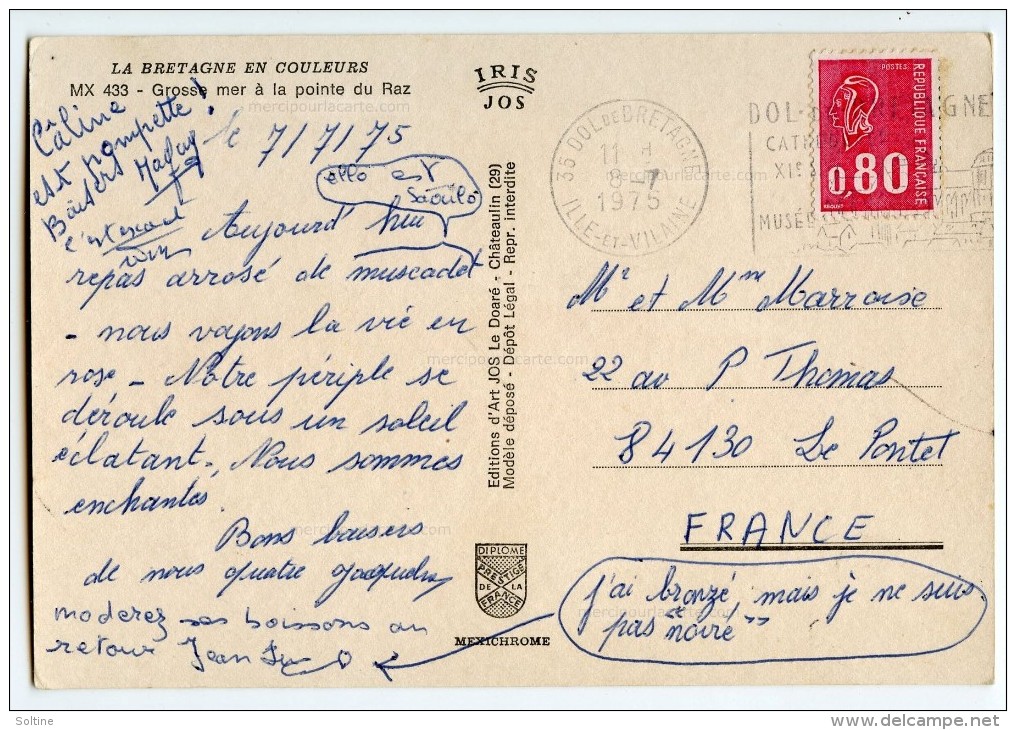 LA BRETAGNE EN COULEURS
MX 433 - Grosse mer à la pointe du Raz
mercipourlacarte.com
IRIS
JOS
Câline
est pompette !
Baisers
le 7/7/75
ello est
Saoûlo
Aujourd'hui
repas arrosé de muscadet
- nous voyons la vie en
rose - Notre périple se
déroule sous un soleil
éclatant -, Nous sommes
enchantés.
Bons baisers
de nous quatre
moderez ses boissons au
retour Jean
mercipourlacarte.com
mercipourlacarte.com
Editions d'Art JOS Le Doaré - Châteaulin (29)
Modèle déposé - Dépôt Légal - Repr. interdite
DIPLOME
PRESTIGE
DE LA
FRANCE
MEXICHROME
35 DOL DE BRETAGNE
11 H
8-7
1975
ILLE-ET-VILAINE
DOL-DE-BRETAGNE
CATHED
XIe
MUSÉE
POSTES
RÉPUBLIQUE FRANÇAISE
0,80
mercipourlacarte.com
Mr et Mme Marroise
mercipourlacarte.com
22 av P Thomas
84130 Le Pontet
FRANCE
j'ai bronzé, mais je ne suis
pas "noire"
mercipourlacarte.com
Soltine
www.delcampe.net